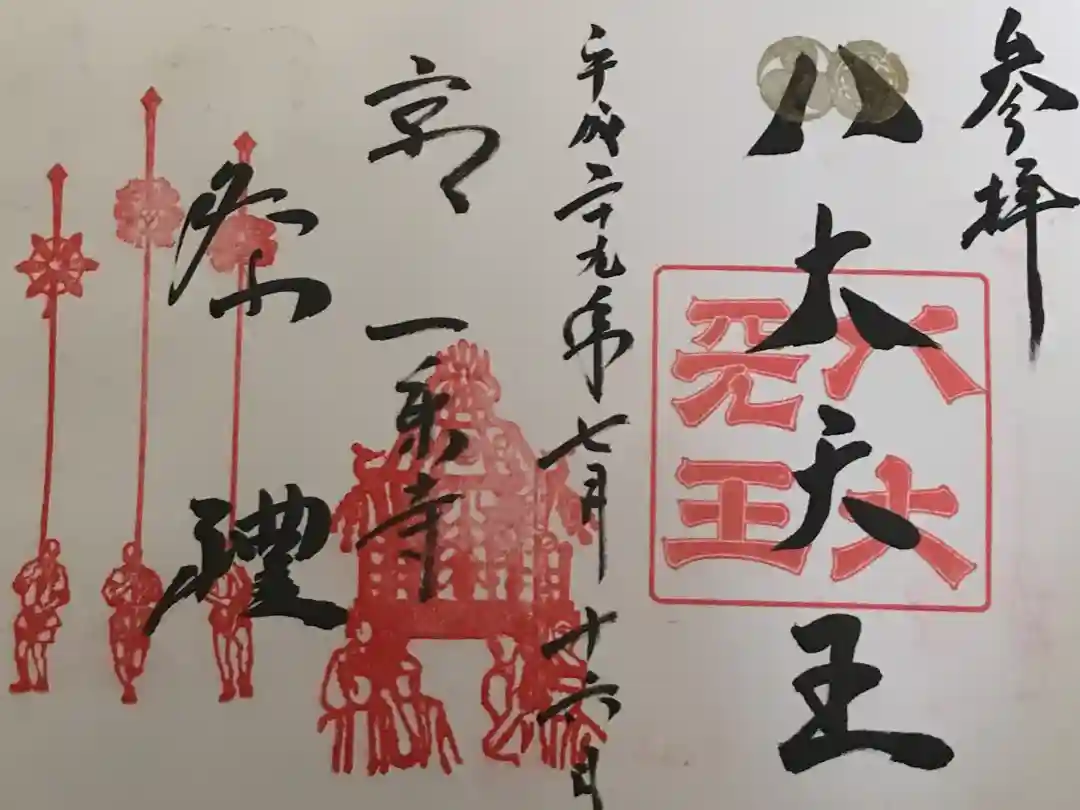 参拝
八大天王
八大天王
平成二十九年七月十六日
京 一乗寺
祭禮